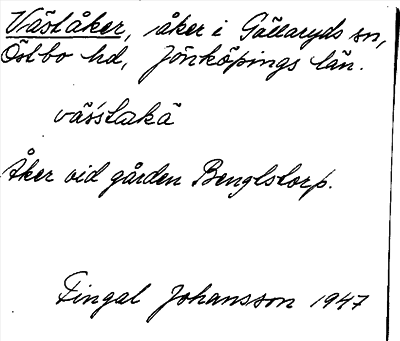 Väståker, åker i Gällaryds sn,
Östbo hd, Jönköpings län.
väs'stakä
Åker vid gården Bengtstorp.
Fingal Johansson 1947